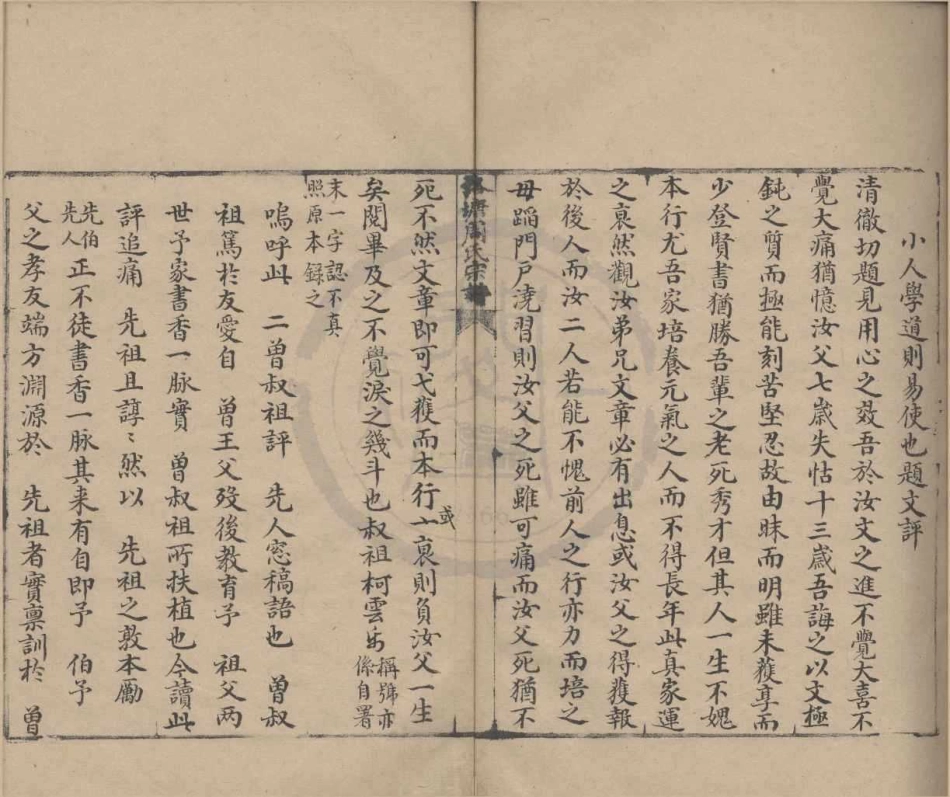 小人學道則易使也題文評
清徹切題見用心之效吾於汝文之進不覺大喜不
覺大痛猶憶汝父七歲失怙十三歲吾誨之以文極
鈍之質而極能刻苦堅忍故由昧而明雖未獲享而
少登賢書猶勝吾輩之老死秀才但其人一生不媿
本行尤吾家培養元氣之人而不得長年此真家運
之衰然觀汝弟兄文章必有出息或汝父之得獲報
於後人而汝二人若能不愧前人之行亦力而培之
毋蹈門戶澆習則汝父之死雖可痛而汝父死猶不
周氏宗譜
死不然文章即可弋獲而本行一或衰則負汝父一生
矣閱畢及之不覺淚之幾斗也叔祖柯雲 稱號亦係自署
末一字認不真照原本錄之
嗚呼此 二曾叔祖評 先人窓稿語也 曾叔
祖篤於友愛自 曾王父歿後教育予 祖父兩
世予家書香一脈實 曾叔祖所扶植也今讀此
評追痛 先祖且諄〻然以 先祖之敦本勵
先伯先人正不徒書香一脈其来有自即予 伯予
父之孝友端方淵源於 先祖者實禀訓於 曾